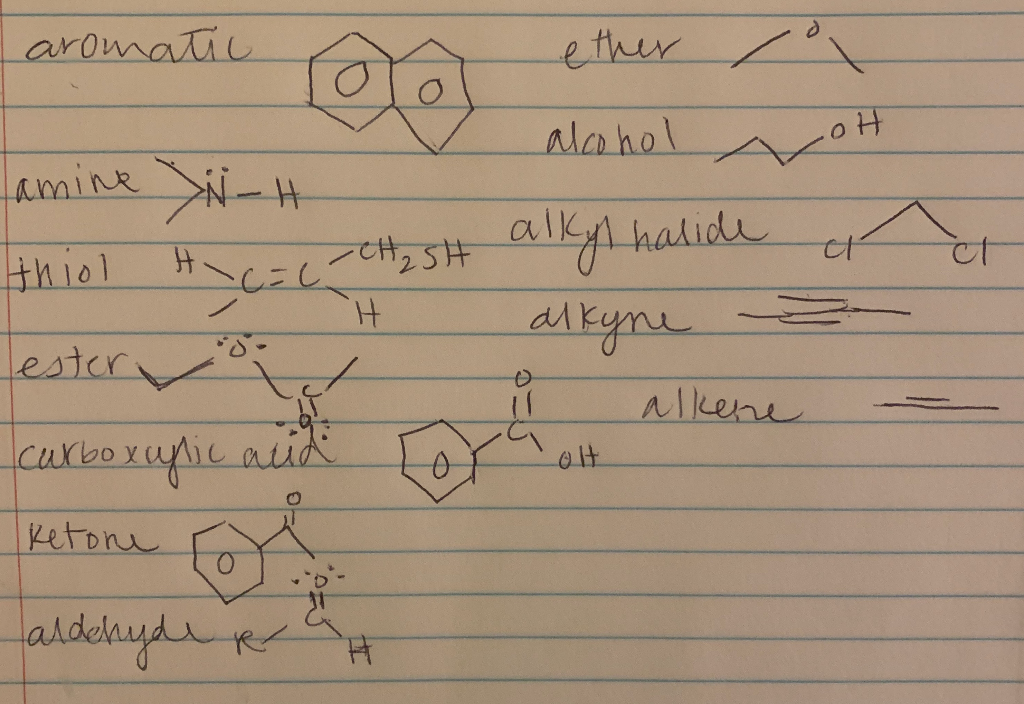 aromatic
ether O
alcohol OH
amine N-H
alkyl halide Cl Cl
thiol H C=C CH2SH H
alkyne
ester O C O
alkene
carboxylic acid O C OH
ketone O
aldehyde R C O H